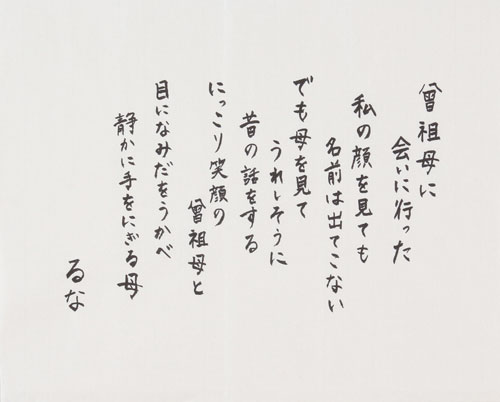 曾祖母に
会いに行った
私の顔を見ても
名前は出てこない
でも母を見て
うれしそうに
昔の話をする
にっこり笑顔の
曾祖母と
目になみだをうかべ
静かに手をにぎる母
るな